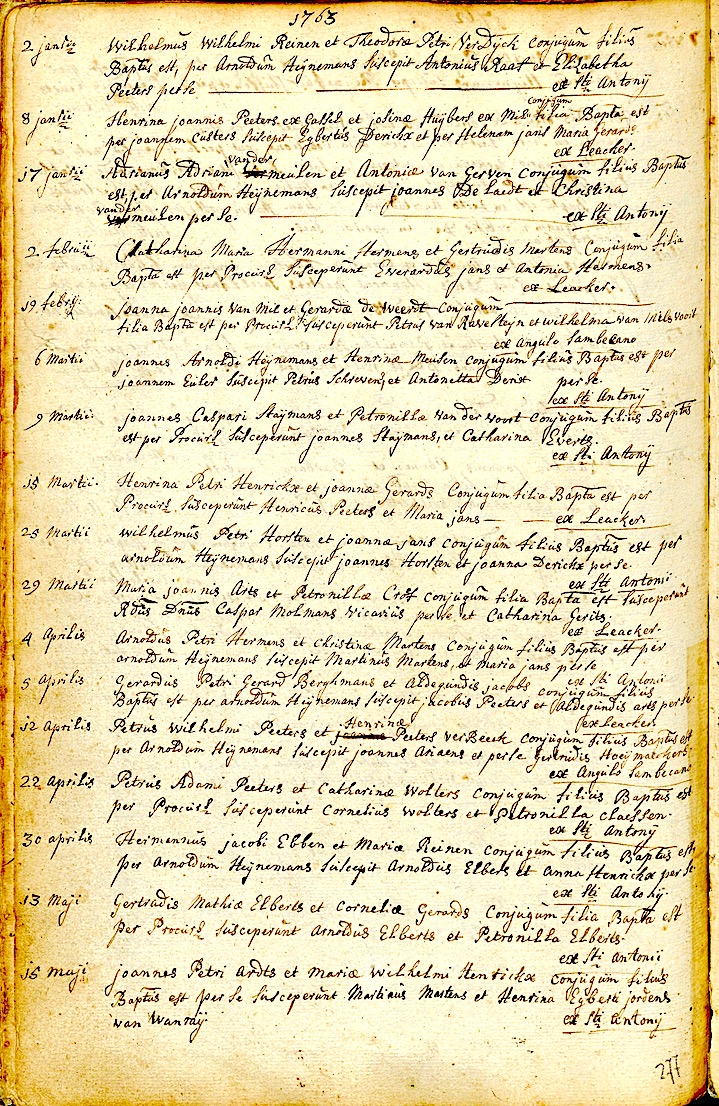 1763
2 januii Wilhelmus Wilhelmi Reinen et Theodoræ Petri VerDijck conjugum filius
Baptus est, per Arnoldum Heijnemans suscepit Antonius Raaf et Elisabetha
Peeters per se ex Sti Antonij
8 januii Henrina joannis Peeters ex Gassel et josinæ Huijbers ex Mill conjugum filia Bapta est
per joannem Custers suscepit Egbertus Derickx et per Helenam jans Maria Gerards
ex Leacker.
17 januii Adrianus Adriani vander meulen et Antoniæ van Gerven conjugum filius Baptus
est, per Arnoldum Heijnemans suscepit joannes De Laedt et Christina
vander meulen per se. ex Sti Antonij
2. februii Catharina Maria Hermanni Hermens et Gertrudis Martens Conjugum filia
Bapta est per Procurs. susceperunt Everardus jans et Antonia Hermens.
ex Leacker.
19 febrij. joanna joannis van Mil et Gerardæ de weerdt Conjugum
filia Bapta est per Procurs. susceperunt Petrus van Ravesteijn et wilhelma van Melsvoort
ex Angulo Lambecano
6 Martii joannes Arnoldi Heijnemans et Henrinæ Meusen conjugum filius Baptus est per
joannem Euler suscepit Petrus Schrevens et Antonetta per se.
ex Sti Antonij
9 Martii. joannes Caspari Staijmans et Petronillæ van der voort conjugum filius Baptus
est per Procurs. susceperunt joannes Staijmans, et Catharina Everts.
ex Sti Antonij
15 Martii. Henrina Petri Henrickx et joannæ Gerards Conjugum filia Bapta est per
Procurs. susceperunt Henricus Peeters et Maria jans ex Leacker.
25 Martii wilhelmus Petri Horsten et joannæ jans conjugum filius Baptus est per
arnoldum Heijnemans suscepit joannes Horsten et joanna Derickx per se.
ex Sti Antonii
29 Martii Maria joannis Arts et Petronillæ Crof conjugum filia Bapta est susceperunt
Rdus Dnus Caspar Molmans vicarius per se et Catharina Gerits
ex Leacker.
4 Aprilis Arnoldus Petri Hermens et christinæ Martens Conjugum filius Baptus est per
arnoldum Heijnemans suscepit Martinus Martens, et Maria jans per se
ex Sti Antonii
5 Aprilis Gerardus Petri Gerard Berghmans et Aldegundis jacobs conjugum filius
Baptus est per arnoldum Heijnemans suscepit jacobus Peeters et Aldegundis arts per se
ex Leacker
12 Aprilis Petrus Wilhelmi Peeters et Henrinæ Peeters verBeeck conjugum filius Baptus est
per Arnoldum Heijnemans suscepit joannes Ariaens et per se Gertrudis Hoeijmackers
ex Angulo Lambecano
22 Aprilis Petrus Adami Peeters et Catharinæ Wolters conjugum filius Baptus est
per Procurs. susceperunt Cornelius wolters et Petronilla claessen.
ex Sti Antony
30 aprilis Hermannus jacobi Ebben et Mariæ Reinen conjugum filius Baptus est,
per Arnoldum Heijnemans suscepit Arnoldus Elbers et anna Henrickx per se
ex Sti Antonij.
13 Maji Gertrudis Mathiæ Elberts et Corneliæ Gerards Conjugum filia Bapta est
per Procurs. susceperunt Arnoldus Elberts et Petronilla Elberts.
ex Sti Antonii
15 maji joannes Petri Ardts et mariæ Wilhelmi Henrickx conjugum filius
Baptus est per se susceperunt Martinus Martens et Henrina Egberti jordens
van Wanraij ex Sti antonij
277